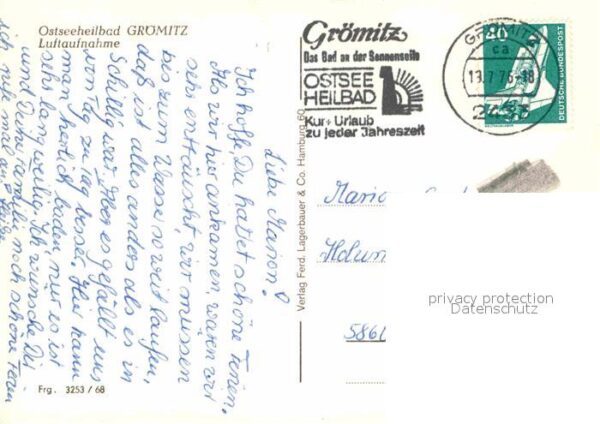 Ostseeheilbad GRÖMITZ
Luftaufnahme
Liebe Marion!
Ich hoffe, Du hattest schöne Ferien.
Als wir hier ankamen, waren wir
sehr enttäuscht, wir müssen
bis zum Wasser so weit laufen,
daß alles anders als es in
war. Aber es gefällt uns
von Tag zu Tag besser. Hier kann
man herrlich baden, nur es ist
sehr langweilig. Ich wünsche Dir
und Deiner Familie noch schöne Ferien
Frg. 3253/68
Verlag Ferd. Lagerbauer & Co. Hamburg 60
Grömitz
Das Bad an der Sonnenseite
OSTSEE
HEILBAD
Kur + Urlaub
zu jeder Jahreszeit
GRÖMITZ
ca
13.7.76-18
2433
40
DEUTSCHE BUNDESPOST
Marion
privacy protection
Datenschutz